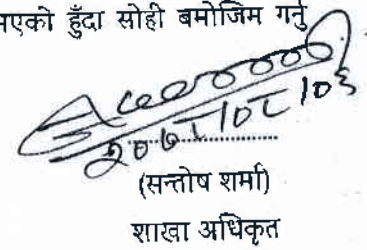 भएको हुँदा सोही बमोजिम गर्नु
२०७८/०८/०६
(सन्तोष शर्मा)
शाखा अधिकृत